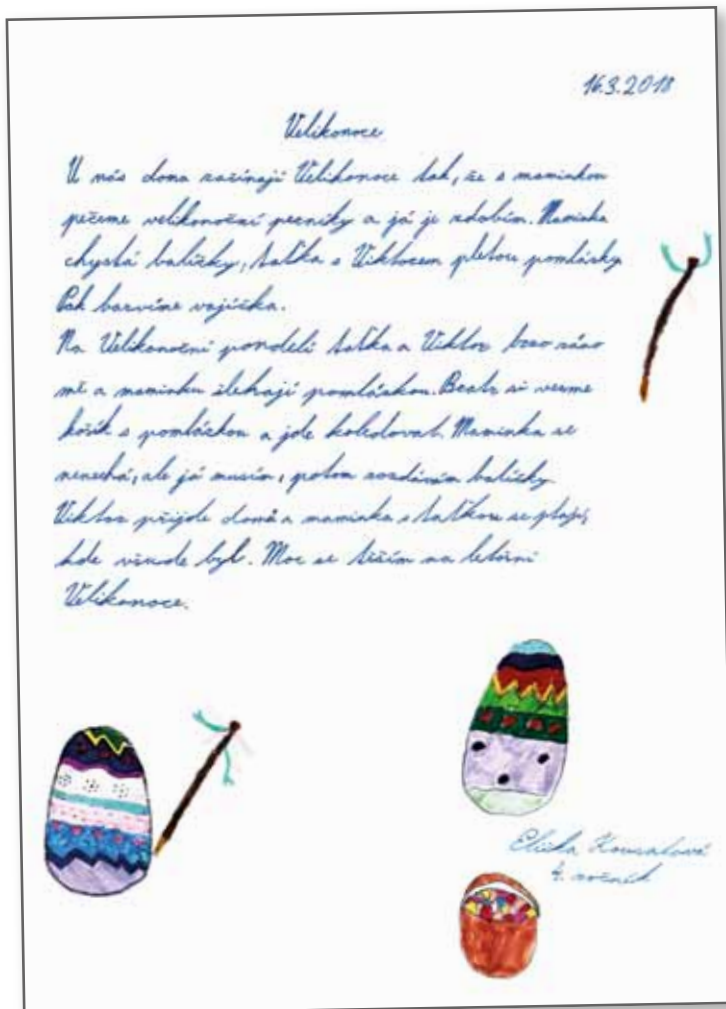 16.3.2018
Velikonoce
U nás doma začínají Velikonoce tak, že s maminkou
pečeme velikonoční perníky a já je zdobím. Maminka
chystá balíčky, taťka s Viktorem pletou pomlázky.
Pak barvíme vajíčka.
Na Velikonoční pondělí taťka a Viktor brzo ráno
mě a maminku šlehají pomlázkou. Bratr si vezme
košík s pomlázkou a jde koledovat. Maminka se
nenechá, ale já musím, potom rozdávám balíčky.
Viktor přijde domů a maminka s taťkou se ptají,
kde všude byl. Moc se těším na letošní
Velikonoce.
Eliška
4. ročník